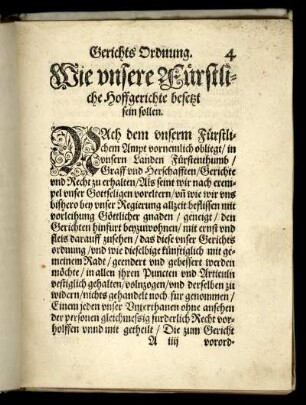 Gerichts Ordnung. 4
Wie vnsere Fürstli-
che Hoffgerichte besetzt
sein sollen.
NAch dem vnserm Fürstli-
chem Ampt vornemlich obliegt / in
vnsern Landen Fürstenthumb /
Graff vnd Herschafften / Gerichte
vnd Recht zu erhalten / Als seint wir nach exem-
pel vnser Gottseligen voreltern / vñ wie wir vns
bishero bey vnser Regierung allzeit beflissen mit
vorleihung Göttlicher gnaden / geneigt / den
Gerichten hinfurt beyzuwohnen / mit ernst vnd
fleis darauff zusehen / das diese vnser Gerichts
ordnung / vnd wie dieselbige künfftiglich mit ge-
meinem Radt / geendert vnd gebessert werden
möchte / in allen jhren Puncten vnd Articuln
vestiglich gehalten / volnzogen / vnd derselben zu
widern / nichts gehandelt noch für genommen /
Einem jeden vnser Vnterthanen ohne ansehen
der personen gleichmessig furderlich Recht vor-
holffen vnnd mit getheilt / Die zum Gericht
A iiij vorord-